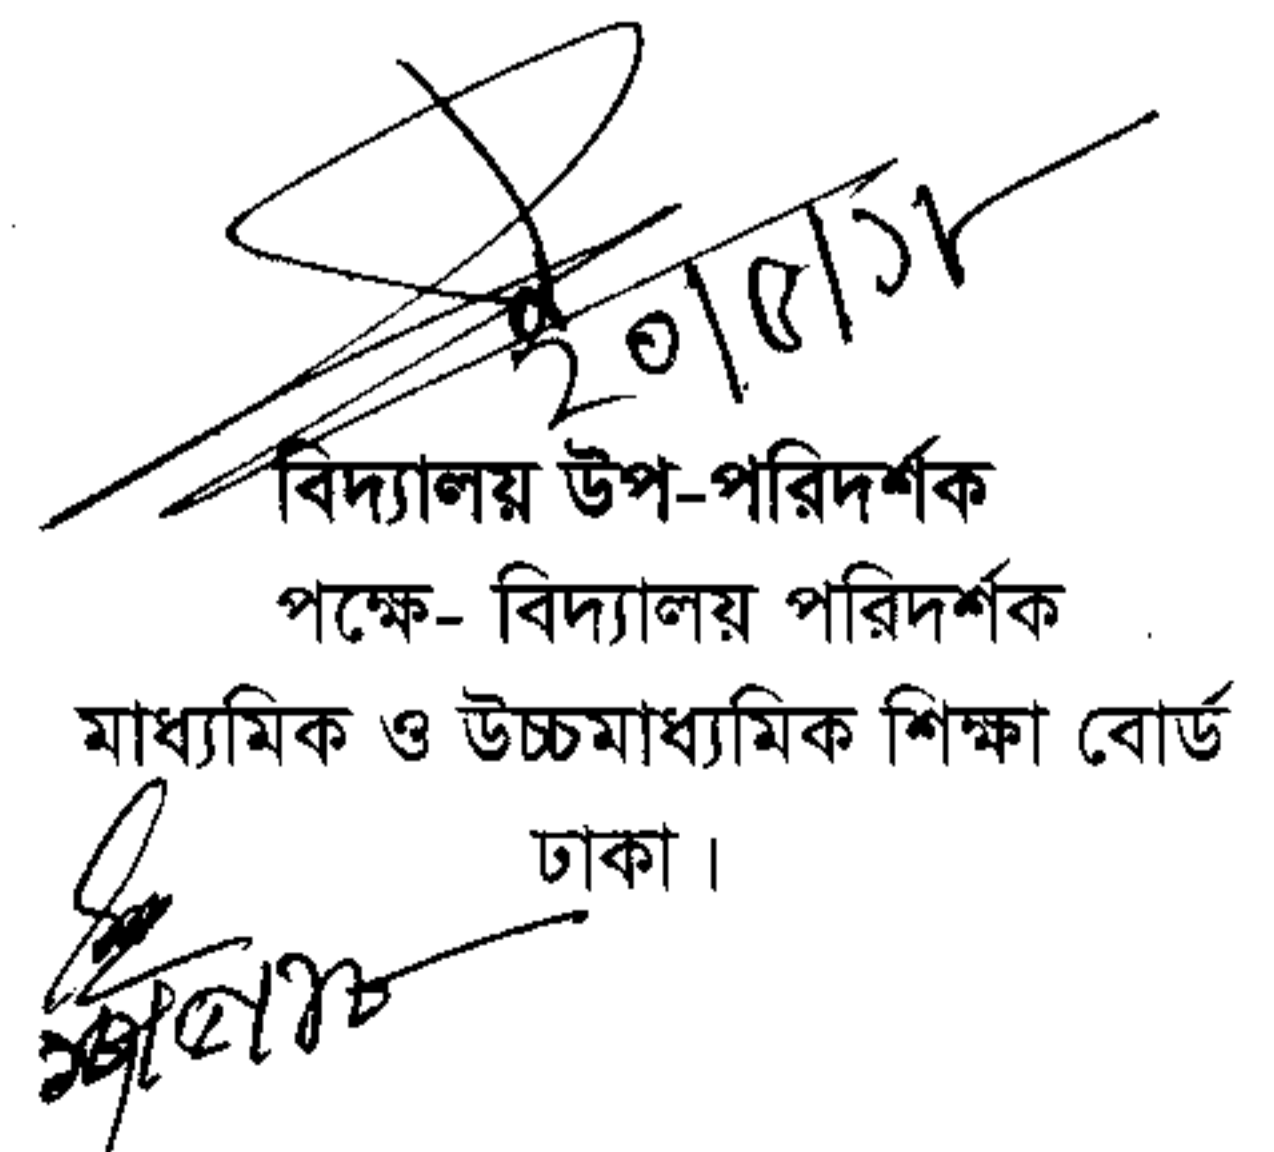 ২০/৫/১৮
বিদ্যালয় উপ-পরিদর্শক
পক্ষে- বিদ্যালয় পরিদর্শক
মাধ্যমিক ও উচ্চমাধ্যমিক শিক্ষা বোর্ড
ঢাকা।